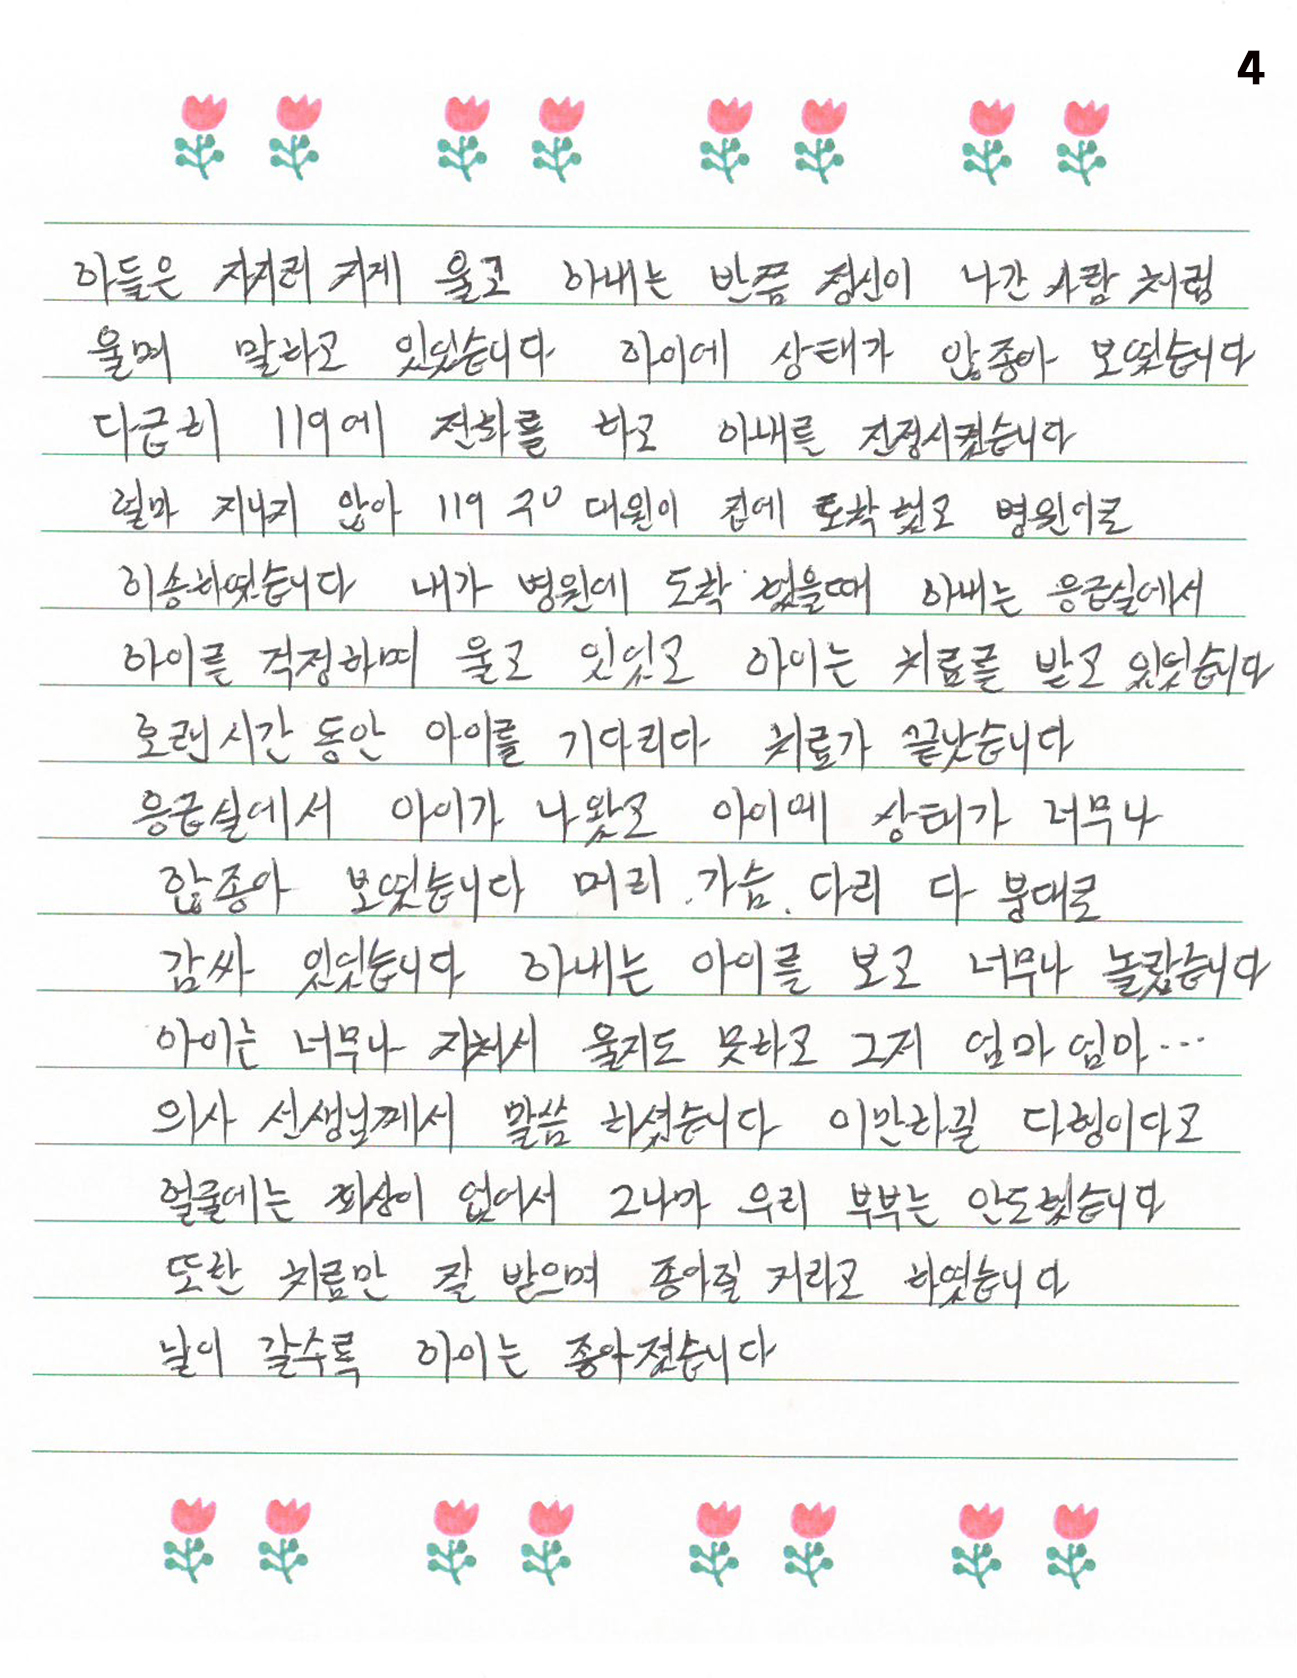 4
아들은 자지러 지게 울고 아내는 반쯤 정신이 나간 사람 처럼
울며 말하고 있었습니다 아이에 상태가 않좋아 보였습니다
다급히 119에 전화를 하고 아내를 진정시켰습니다
얼마 지나지 않아 119 구급 대원이 집에 도착 했고 병원이로
이송하였습니다 내가 병원에 도착 했을때 아내는 응급실에서
아이를 걱정하며 울고 있었고 아이는 치료를 받고 있었습니다
오랜 시간 동안 아이를 기다리다 치료가 끝났습니다
응급실에서 아이가 나왔고 아이에 상태가 너무나
않좋아 보였습니다 머리.가슴.다리 다 붕대로
감싸 있었습니다 아내는 아이를 보고 너무나 놀랐습니다
아이는 너무나 지쳐서 울지도 못하고 그저 엄마 엄마...
의사 선생님께서 말씀 하셨습니다 이만하길 다행이다고
얼굴에는 화상이 없어서 그나마 우리 부부는 안도했습니다
또한 치료만 잘 받으며 좋아질 거라고 하였습니다
날이 갈수록 아이는 좋아졌습니다